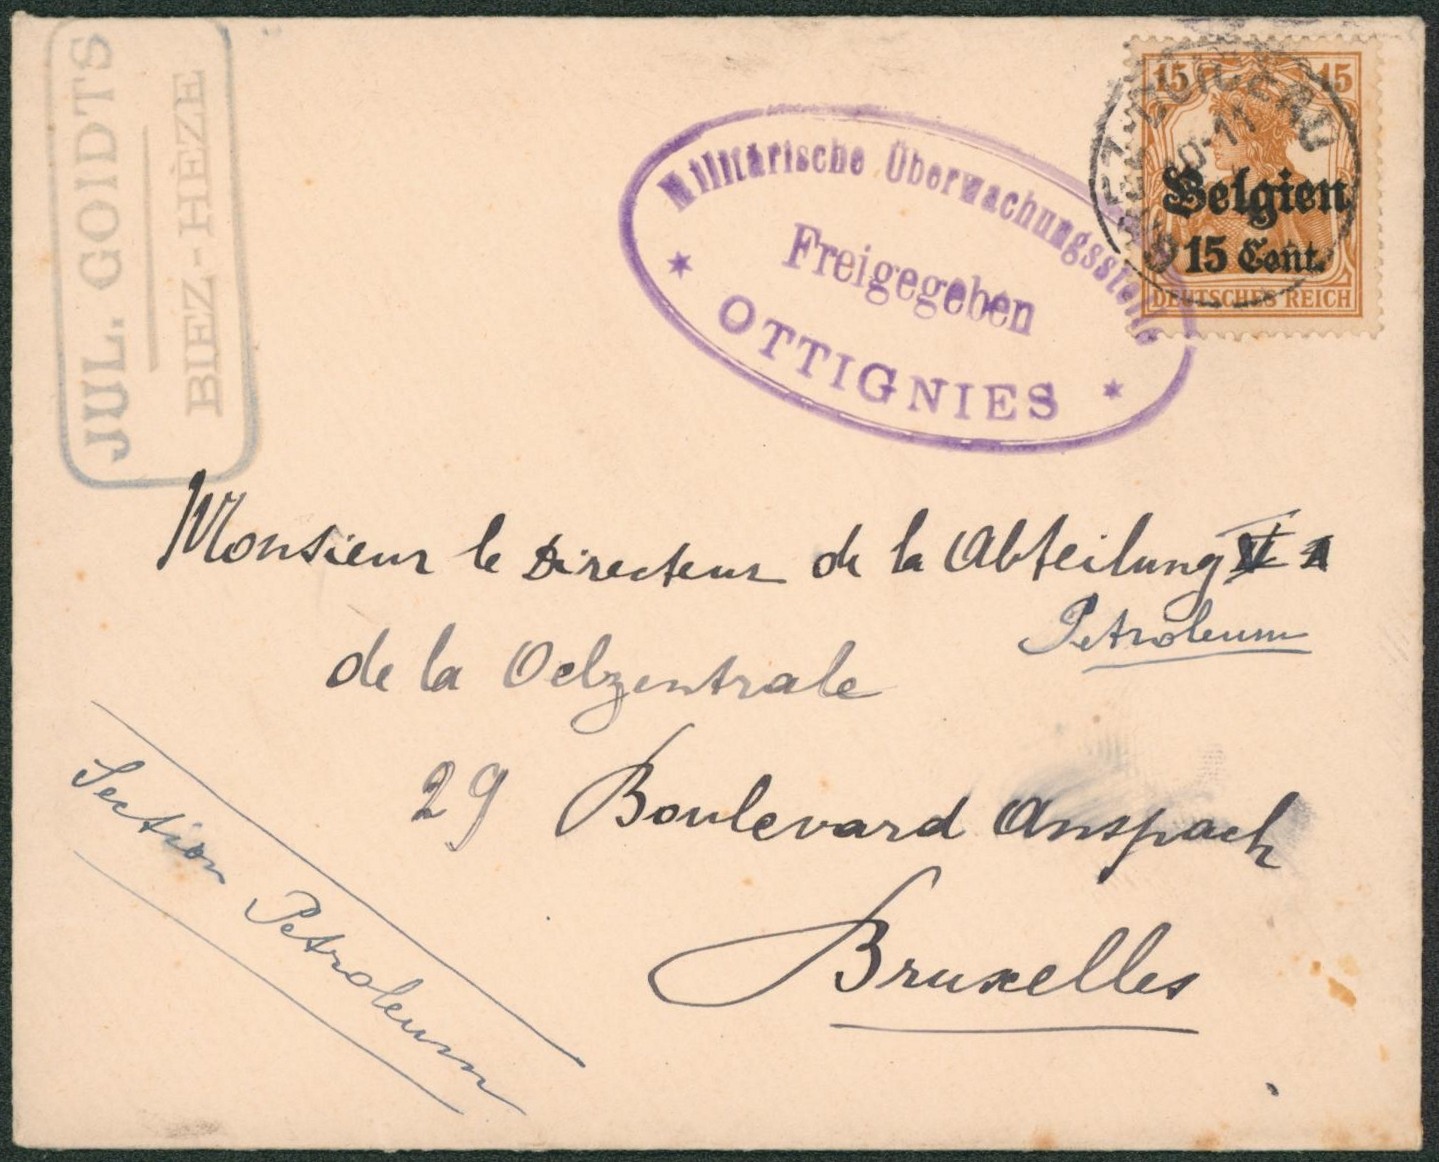 JUL. GOIDTS
BIEZ-HÈZE
Militärische Überwachungsstelle
Freigegeben
* OTTIGNIES *
15 15
10-11
Belgien
15 Cent.
DEUTSCHES REICH
Monsieur le Directeur de la Abteilung
Petroleum
de la Oelzentrale
29 Boulevard Anspach
Bruxelles
Section Petroleum